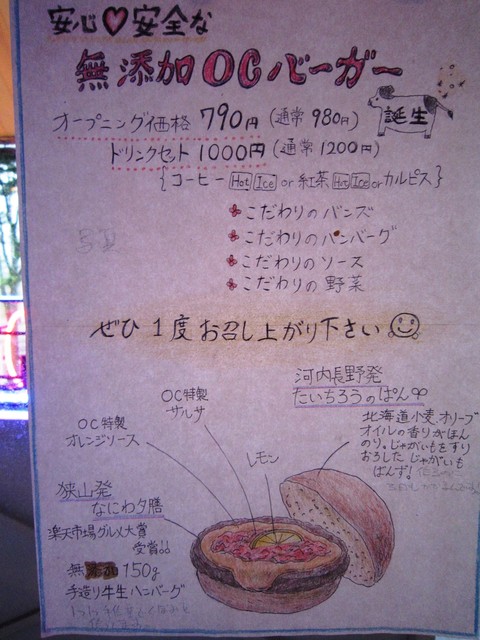 安心♡安全な
無添加OCバーガー
誕生
オープニング価格 790円 (通常 980円)
ドリンクセット 1000円 (通常 1200円)
{コーヒー Hot Ice or 紅茶 Hot Ice or カルピス}
こだわりのバンズ
こだわりのハンバーグ
こだわりのソース
こだわりの野菜
ぜひ1度お召し上がり下さい
河内長野発
たいちろうのぱん
北海道小麦、オリーブ
オイルの香りがほん
のり。じゃがいもをすり
おろした じゃがいも
ばんず!
OC特製
サルサ
OC特製
オレンジソース
レモン
狭山発
なにわ夕膳
楽天市場グルメ大賞
受賞!!
150g
手造り牛生ハンバーグ